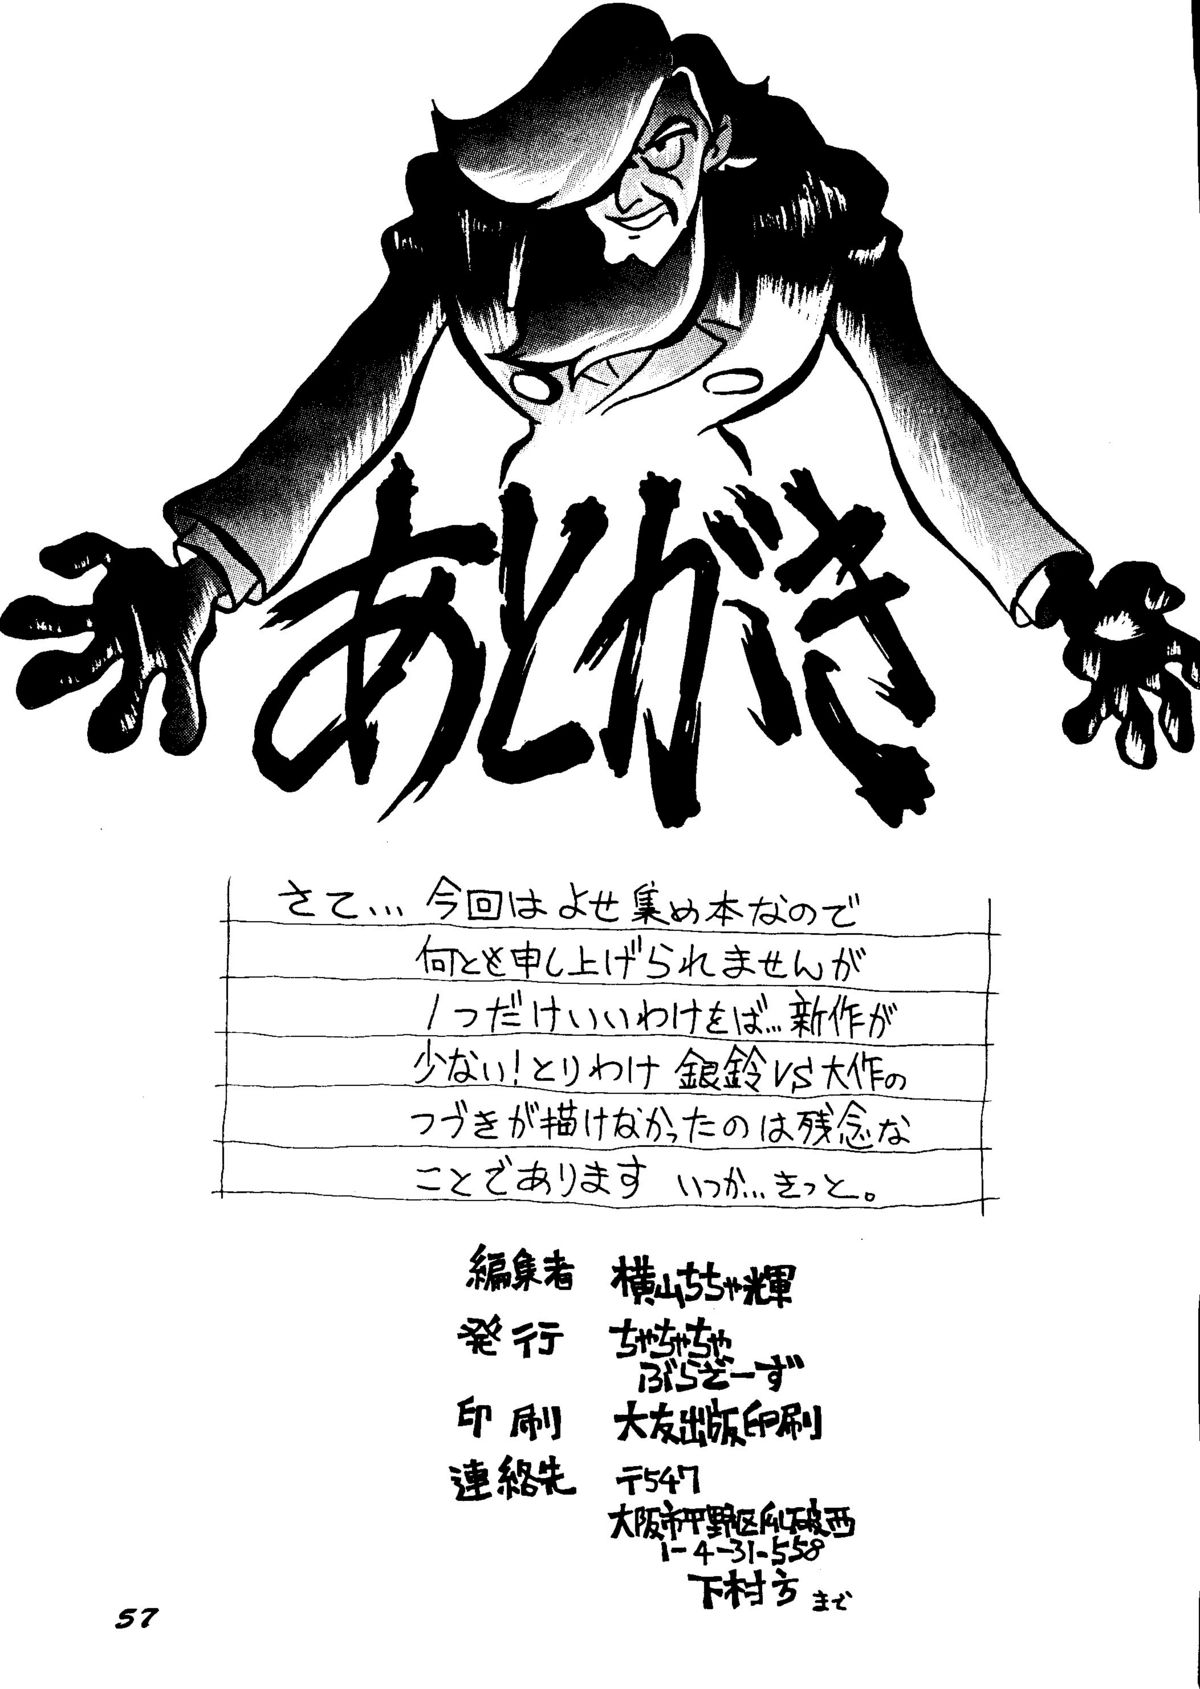 あとがき
さて… 今回はよせ集め本なので
何とも申し上げられませんが
1つだけいいわけをば…新作が
少ない！とりわけ 銀鈴VS大作の
つづきが描けなかったのは残念な
ことであります いつか…きっと。
編集者 横山ちちゃ輝
発行 ちゃちゃちゃ
ぶらざーず
印刷 大友出版印刷
連絡先 〒547
大阪市平野区瓜破西
1-4-31-558
下村方 まで
57